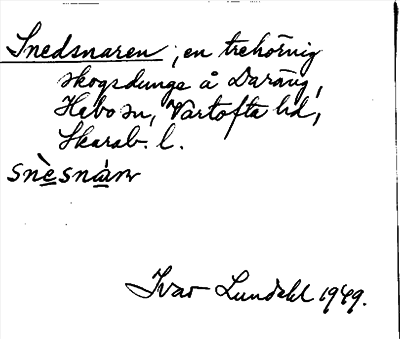 Snedsnaren; en trehörnig
skogsdunge å Daräng,
Hebo sn, Vartofta hd,
Skarab. l.
snèsnàṇ
Ivar Lundahl 1949.